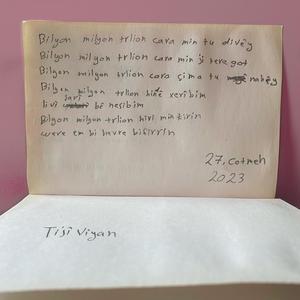 Bilyon milyon trlion cara min tu divêy
Bilyon milyon trlion cara min ji tere got
Bilyon milyon trlion cara çima tu nahêy
Bilyon milyon trlion hinê xerîbim
li vî jarî bê nesibim
Bilyon milyon trlion hirî min kirin
were em bi hevre bifirrin
27, cotmeh
2023
Tiji Viyan